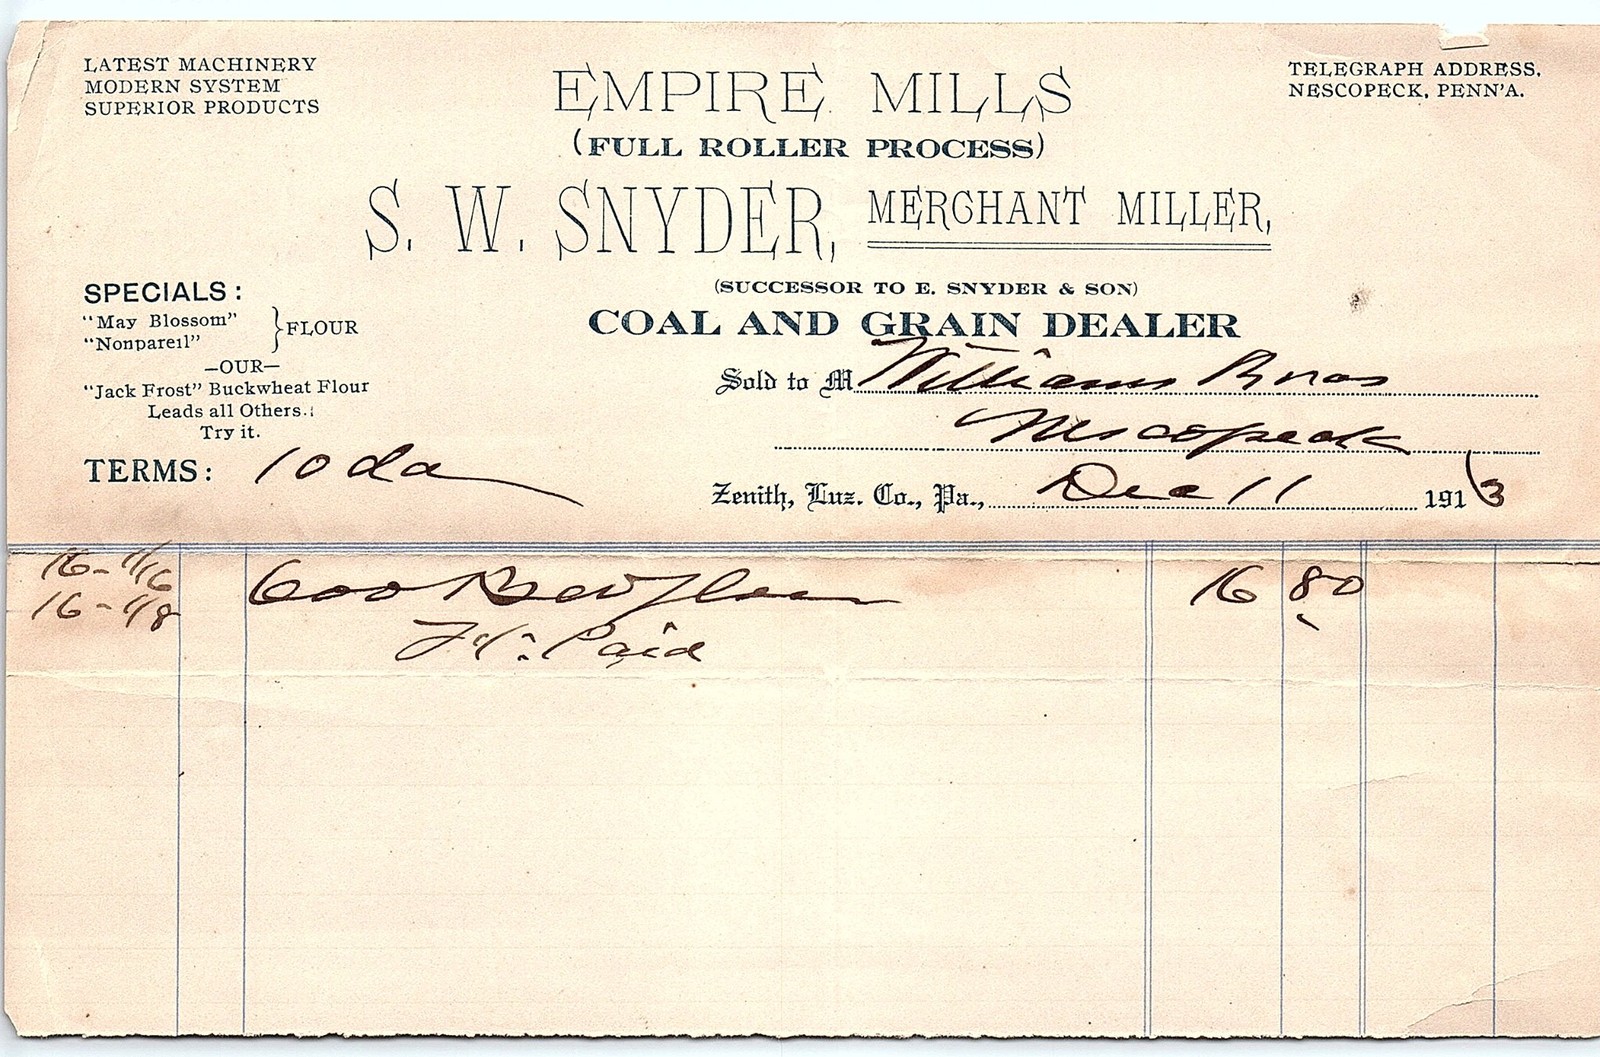 LATEST MACHINERY
MODERN SYSTEM
SUPERIOR PRODUCTS
TELEGRAPH ADDRESS,
NESCOPECK, PENN'A.
EMPIRE MILLS
(FULL ROLLER PROCESS)
S. W. SNYDER, MERCHANT MILLER,
(SUCCESSOR TO E. SNYDER & SON)
COAL AND GRAIN DEALER
SPECIALS:
"May Blossom"
"Nonpareil"
FLOUR
—OUR—
"Jack Frost" Buckwheat Flour
Leads all Others.
Try it.
TERMS: 10 da
Sold to M Williams Bros
Nescopeck
Zenith, Luz. Co., Pa., Dec 11 1913
16 - 1/16
16 - 1/8
600 Bw Flour 16 80
Ft. Paid